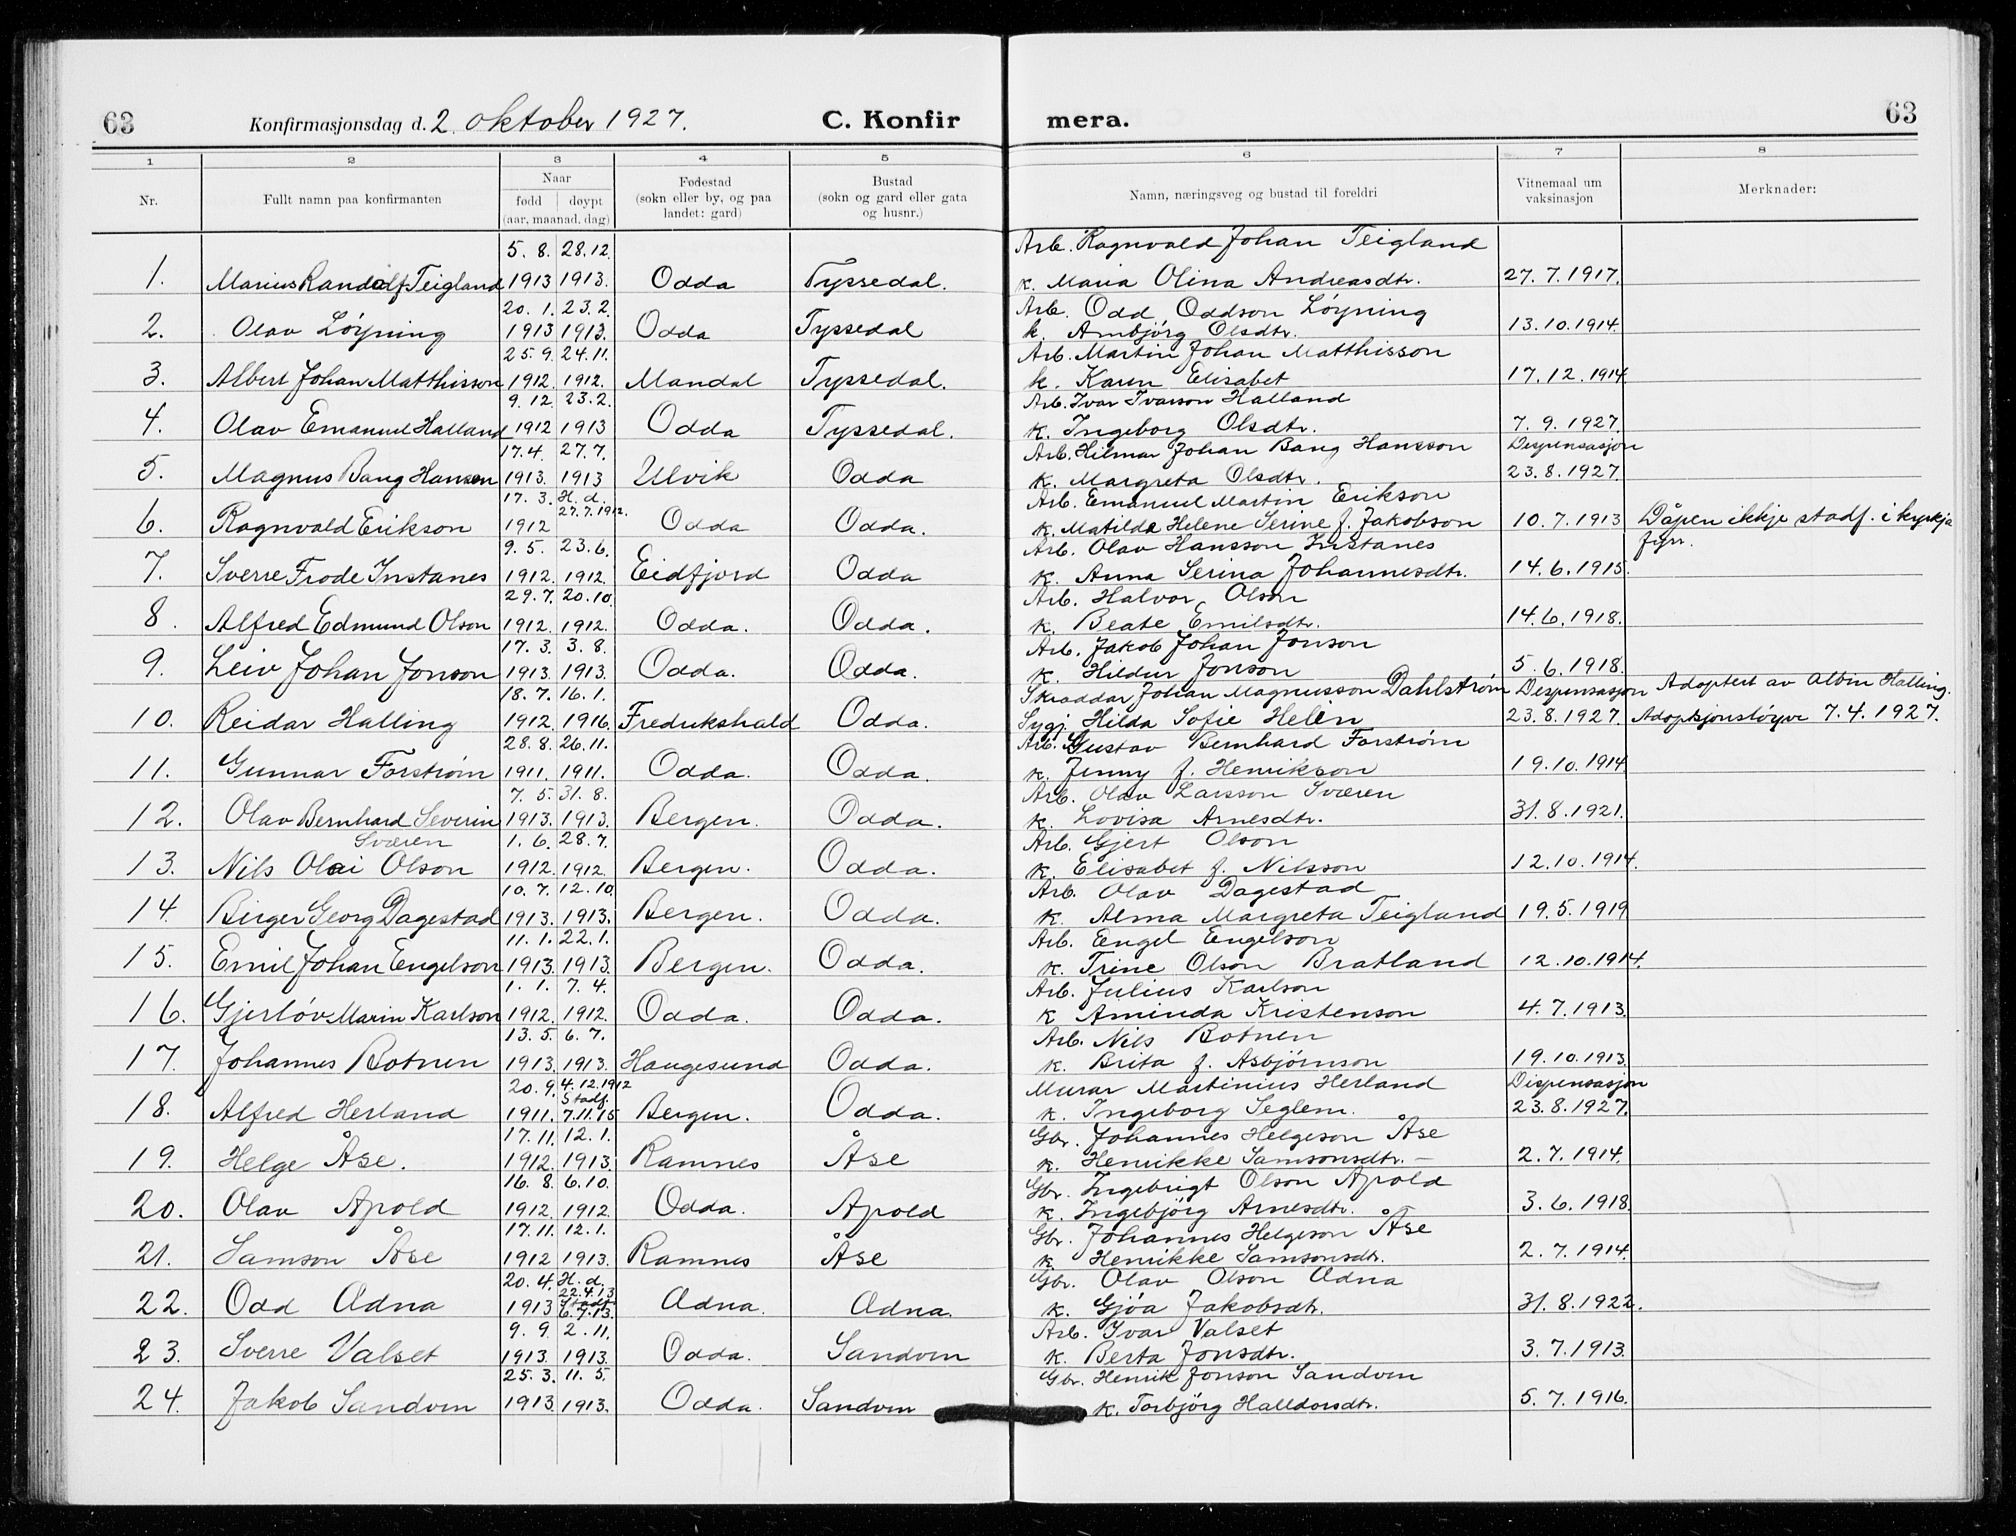 63 Konfirmasjonsdag d. 2. oktober 1927. C. Konfir mera. 63
1 2 3 4 5 6 7 8
Nr. Fullt namn paa konfirmanten Naar født døypt (aar, maanad, dag) Fødestad (sokn eller by, og paa landet: gard) Bustad (sokn og gard eller gata og husnr.) Namn, næringsveg og bustad til foreldri Vitnemaal um vaksinasjon Merknader:
5. 8. 28.12. Arb. Ragnvald Johan Teigland
1. Marius Randolf Teigland 1913 1913. Odda Tyssedal. k. Maria Olina Andreasdtr. 27.7.1917.
20. 1. 23.2. Arb. Odd Oddson Løyning
2. Olav Løyning 1913 1913. Odda Tyssedal k. Ambjørg Olsdtr. 13.10.1914.
25.9. 24.11. Arb. Martin Johan Matthisson
3. Albert Johan Matthisson 1912. 1912. Mandal Tyssedal. k. Karen Elisabet 17.12.1914
9. 12. 23.2. Arb. Ivar Ivarson Halland
4. Olav Emanuel Halland 1912 1913 Odda Tyssedal. k. Ingeborg Olsdtr. 7. 9. 1927.
17.4. 27.7. Arb. Hilmar Johan Bang Hansson Dispensasjon
5. Magnus Bang Hansen 1913. 1913 Ulvik Odda k. Margreta Olsdtr. 23.8.1927.
17. 3. H. d. 27.7.1912. Arb. Emanuel Martin Erikson
6. Ragnvald Erikson 1912 Odda Odda. k. Matilde Helene Serine f. Jakobson 10.7.1913 Dåpen ikkje stadf. i kyrkja
9. 5. 23.6. Arb. Olav Hansson Instanes fyrr.
7. Sverre Frode Instanes 1912. 1912. Eidfjord Odda k. Anna Serina Johannesdtr. 14.6.1915.
29.7. 20.10. Arb. Halvor Olson
8. Alfred Edmund Olson 1912. 1912. Odda. Odda. k. Beate Emilsdtr. 14.6.1918.
17. 3. 3. 8. Arb. Jakob Johan Jonson
9. Leiv Johan Jonson 1913. 1913. Odda. Odda. k. Hildur Jonson 5.6.1918.
18.7. 16.1. Skraddar Johan Magnusson Dahlstrøm Dispensasjon Adoptert av Albin Halling.
10. Reidar Halling 1912. 1916. Fredrikshald Odda. Sygj. Hilda Sofie Helèn 23.8.1927. Adopsjonsløyve 7.4.1927.
28.8. 26.11. Arb. Gustav Bernhard Forstrøm
11. Gunnar Forstrøm 1911. 1911. Odda. Odda. k. Jenny f. Henrikson 19.10.1914
7. 5. 31. 8. Arb. Olav Larsson Sværen
12. Olav Bernhard Severin 1913. 1913. Bergen. Odda. k. Lovisa Arnesdtr. 31.8.1921.
Sværen 1. 6. 28.7. Arb. Gjert Olson
13. Nils Olai Olson 1912. 1912. Bergen. Odda. k. Elisabet f. Nilsson 12.10.1914.
10.7. 12.10. Arb. Olav Dagestad
14. Birger Georg Dagestad 1913. 1913. Bergen. Odda. k. Alma Margreta Teigland 19.5.1919
11.1. 22.1. Arb. Engel Engelson
15. Emil Johan Engelson 1913. 1913. Bergen. Odda. k. Trine Olson Bratland 12.10.1914.
1. 1. 7. 4. Arb. Julius Karlson
16. Gjerløv Marin Karlson 1912. 1912. Odda. Odda. k Aminda Kristenson 4.7.1913.
13.5. 6. 7. Arb. Nils Botnen
17. Johannes Botnen 1913. 1913. Haugesund Odda. k. Brita f. Asbjørnson 19.10.1913.
20.9. 4.12.1912 Stadf. Murar Martinius Herland Dispensasjon
18. Alfred Herland 1911. 7.11.15 Bergen. Odda. k. Ingeborg Seglem. 23.8.1927.
17.11. 12.1. Gbr. Johannes Helgeson Åse
19. Helge Åse. 1912. 1913. Ramnes Åse k. Henrikke Samsonsdtr. 2.7.1914.
16. 8. 6.10. Gbr. Ingebrigt Olson Apold
20. Olav Apold 1912. 1912 Odda. Apold k. Ingebjørg Arnesdtr. 3.6.1918.
17.11. 12.1. Gbr. Johannes Helgeson Åse
21. Samson Åse 1912 1913. Ramnes Åse k. Henrikke Samsonsdtr. 2.7.1914.
20.4. H. d. 22.4.13 Gbr. Olav Olson Ædna
22. Odd Ædna 1913 Stadf. 6.7.13. Ædna. Ædna. k. Gjøa Jakobsdtr. 31.8.1922.
9. 9. 2.11. Arb. Ivar Valset
23. Sverre Valset 1913. 1913. Odda. Sandven k. Berta Jonsdtr. 3.7.1913.
25. 3. 11. 5. Gbr. Henrik Jonson Sandven
24. Jakob Sandven 1913 1913. Odda. Sandven k. Torbjørg Halldorsdtr. 5.7.1916.